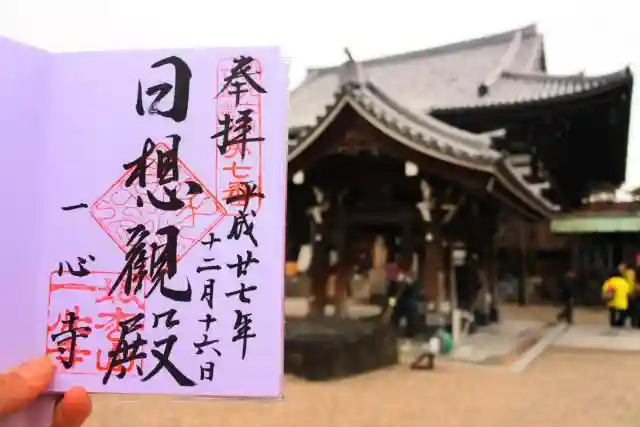 奉拝
平成廿七年
十二月十六日
日想觀殿
一心寺